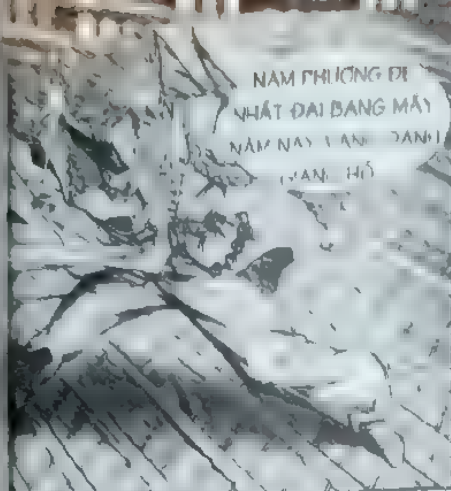 NAM PHƯƠNG ĐỆ
NHẤT ĐẠI BANG MẤY
NĂM NAY DANH
GIANG HỒ